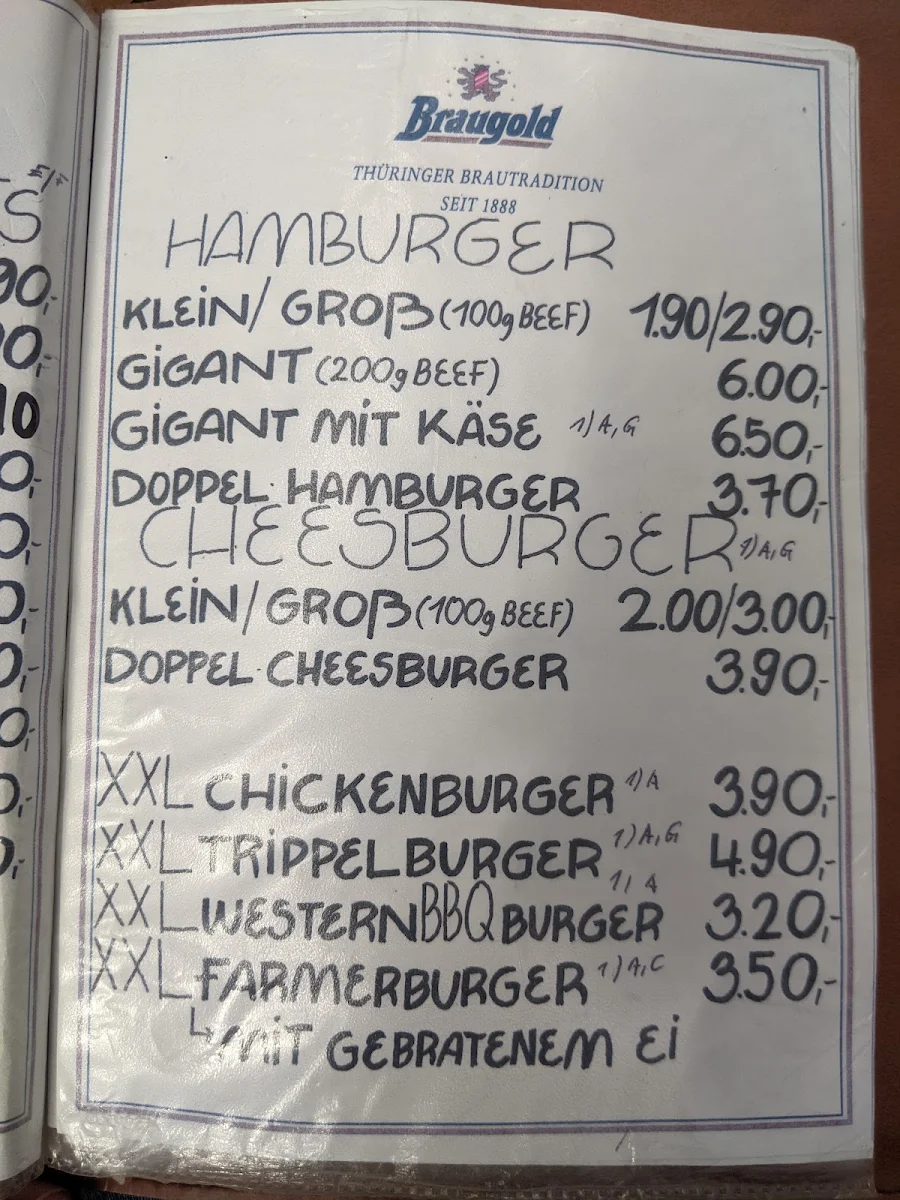 E/F
S
90,-
0,-
10
0,-
0,-
0,-
0,-
0,-
0,-
Braugold
THÜRINGER BRAUTRADITION
SEIT 1888
HAMBURGER
KLEIN/ GROß (100g BEEF) 1.90/2.90,-
GIGANT (200g BEEF) 6.00,-
GIGANT MIT KÄSE 1) A, G 6.50,-
DOPPEL-HAMBURGER 3.70,-
CHEESBURGER 1) A, G
KLEIN/GROß (100g BEEF) 2.00/3.00,-
DOPPEL-CHEESBURGER 3.90,-
XXL CHICKENBURGER 1) A 3.90,-
XXL TRIPPELBURGER 1) A, G 4.90,-
XXL WESTERN BBQ BURGER 1) A 3.20,-
XXL FARMERBURGER 1) A, C 3.50,-
MIT GEBRATENEM EI